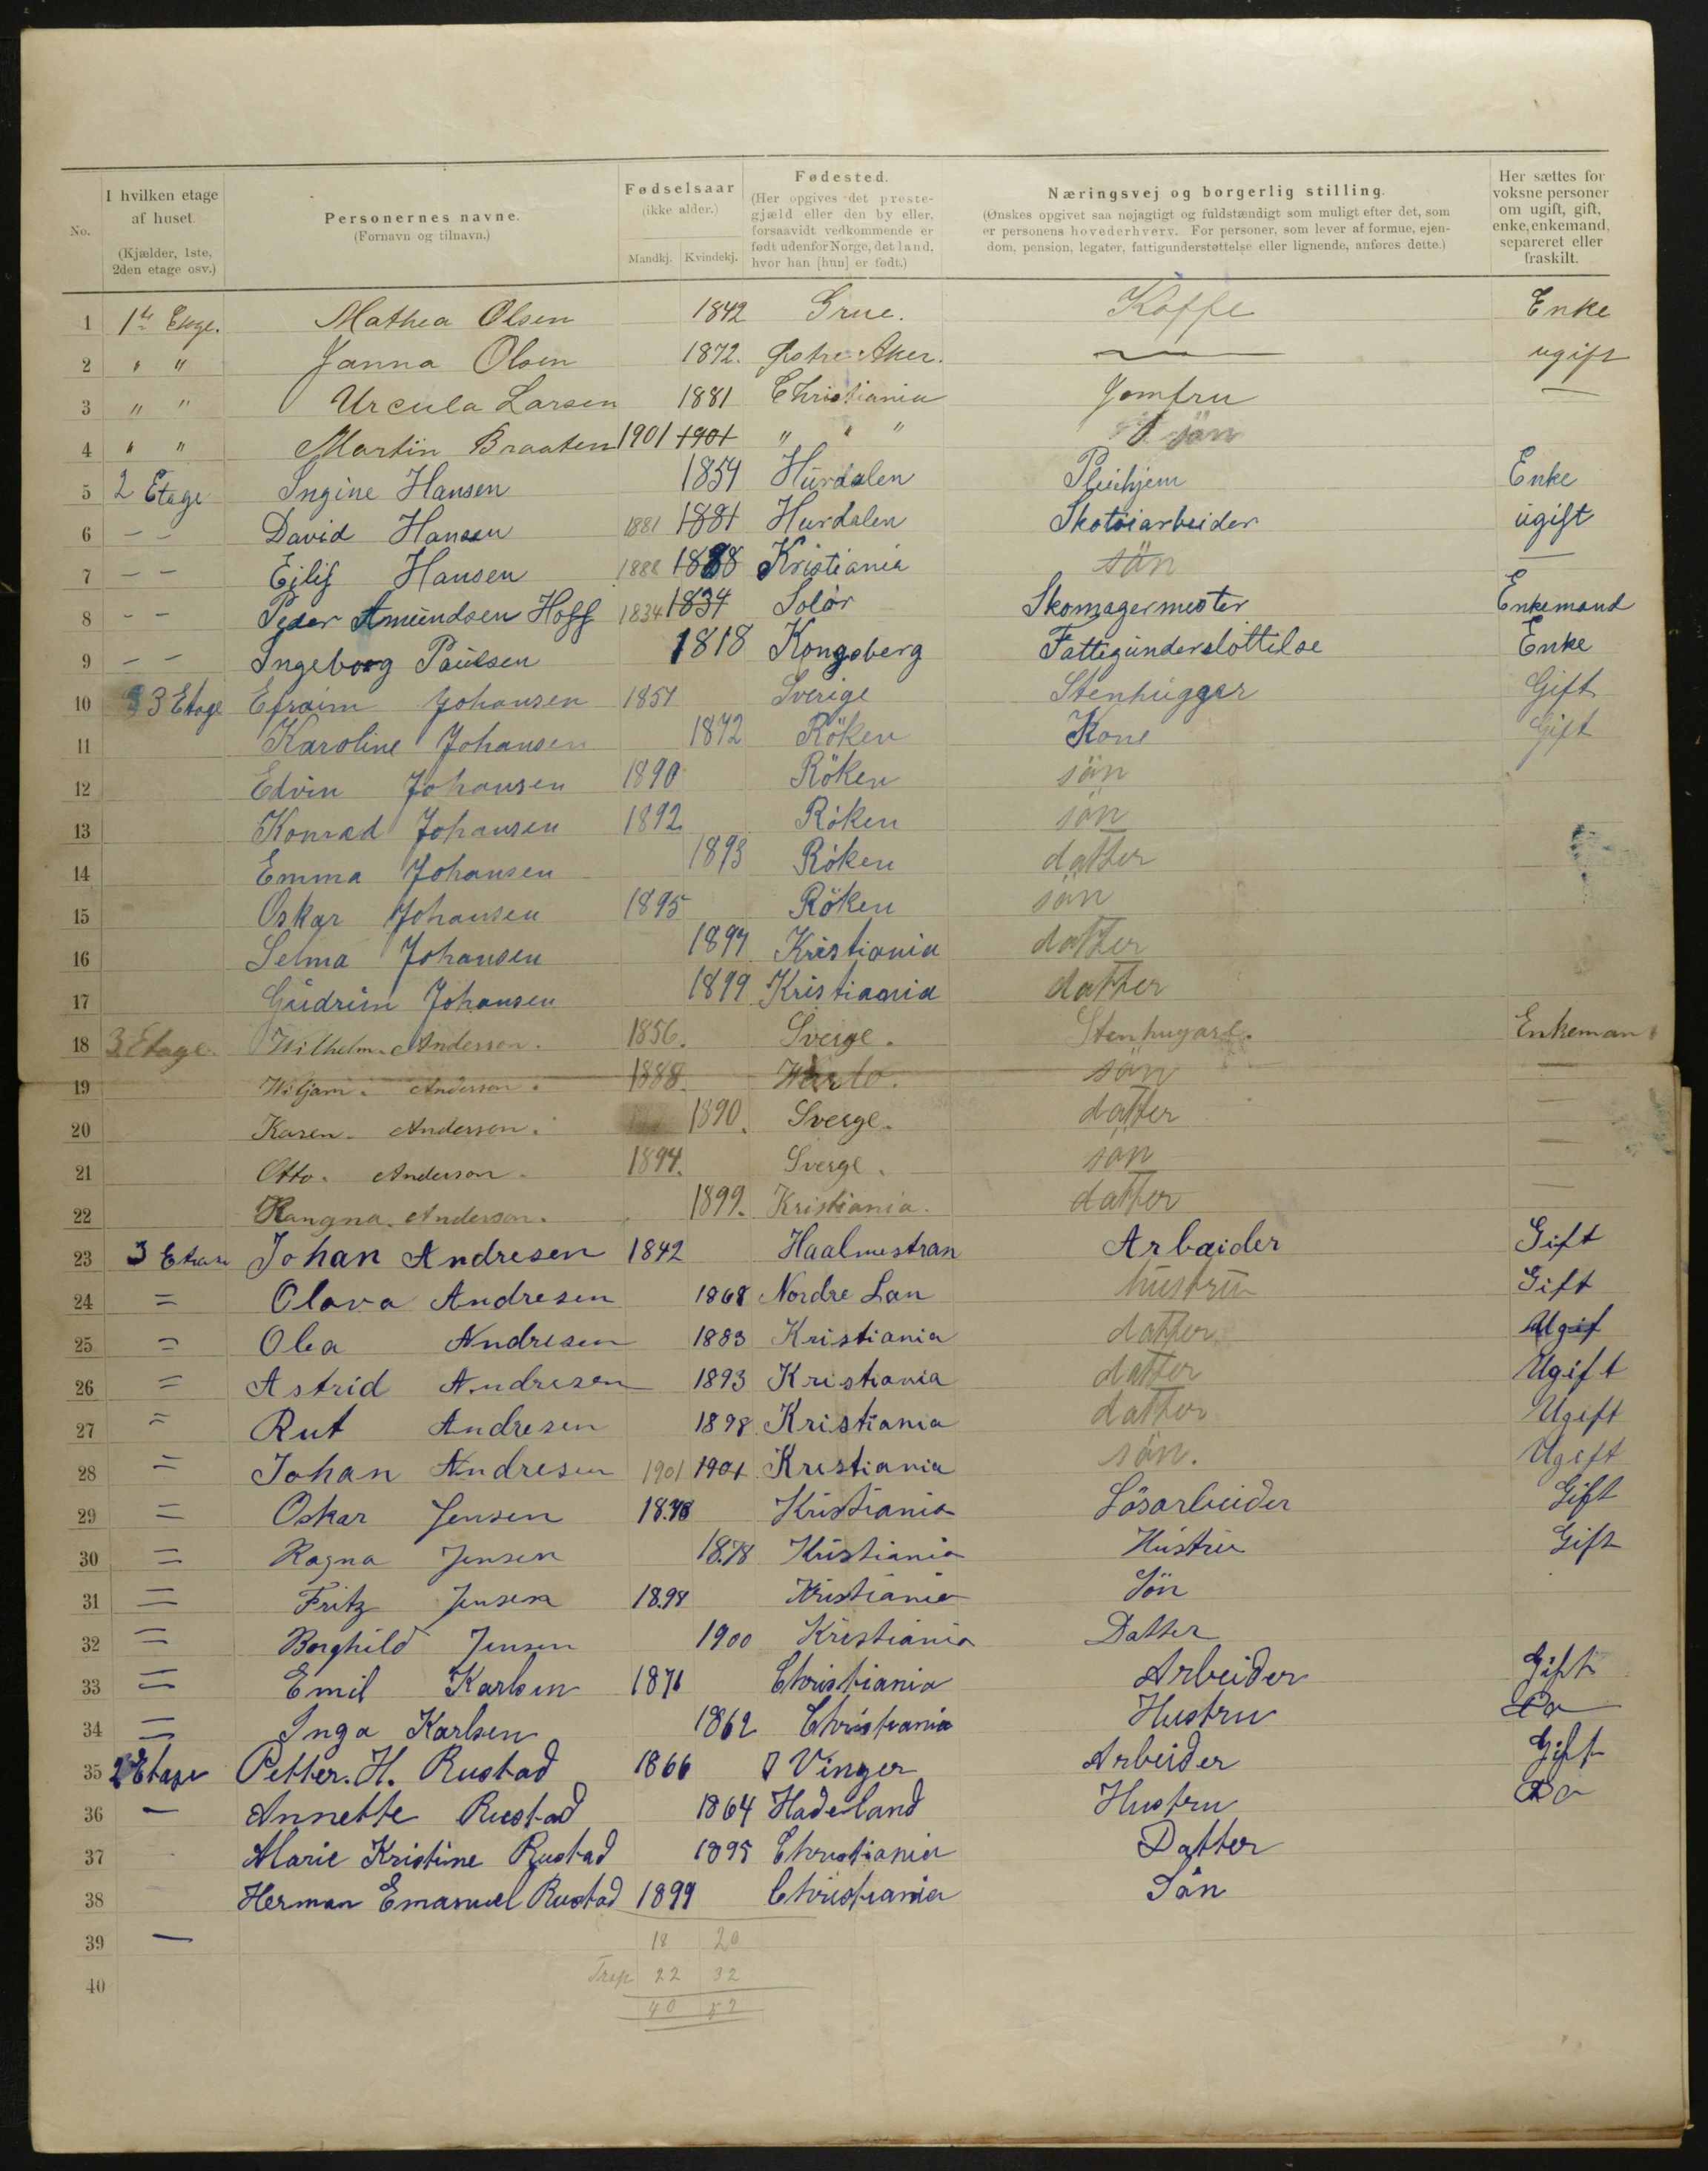 No.
I hvilken etage af huset. (Kjælder, 1ste, 2den etage osv.)
Personernes navne. (Fornavn og tilnavn.)
Fødselsaar (ikke alder.) Mandkj. Kvindekj.
Fødested. (Her opgives det prestegjæld eller den by eller, forsaavidt vedkommende er født udenfor Norge, det land, hvor han [hun] er født.)
Næringsvej og borgerlig stilling. (Ønskes opgivet saa nøjagtigt og fuldstændigt som muligt efter det, som er personens hovederhverv. For personer, som lever af formue, ejendom, pension, legater, fattigunderstøttelse eller lignende, anføres dette.)
Her sættes for voksne personer om ugift, gift, enke, enkemand, separeret eller fraskilt.
1 1ste Etage. Mathea Olsen 1842 Grue. Kaffe Enke
2 " " Janna Olsen 1872. Østre Aker. — ugift
3 " " Urcula Larsen 1881 Christiania Jomfru —
4 " " Martin Braaten 1901 1901 " " " sön
5 2 Etage Ingine Hansen 1854 Hurdalen Pleiehjem Enke
6 — — David Hansen 1881 1881 Hurdalen Skotöiarbeider ugift
7 — — Eilif Hansen 1888 1888 Kristiania sön —
8 - - Peder Amundsen Hoff 1834 1834 Solör Skomagermester Enkemand
9 — — Ingeborg Paulsen 1818 Kongsberg Fattigunderstöttilse Enke
10 3 Etage Efraim Johansen 1854 Sverige Stenhugger Gift
11 Karoline Johansen 1872 Röken Kone Gift
12 Edvin Johansen 1890 Röken sön
13 Konrad Johansen 1892 Röken sön
14 Emma Johansen 1893 Röken datter
15 Oskar Johansen 1895 Röken sön
16 Selma Johansen 1897 Kristiania datter
17 Gudrun Johansen 1899 Kristiania datter
18 3 Etage. Wilhelm. Anderson. 1856. Sverge. Stenhugare. Enkeman
19 Wiljam. Anderson. 1888. sön —
20 Karen. Anderson. 1890. Sverge. datter —
21 Otto. Anderson. 1894. Sverge. sön —
22 Rangna. Anderson. 1899. Kristiania. datter —
23 3 Etase Johan Andresen 1842 Haalmestran Arbeider Gift
24 = Olava Andresen 1868 Nordre Lan hustru Gift
25 = Olea Andresen 1883 Kristiania datter Ugif
26 = Astrid Andresen 1893 Kristiania datter Ugift
27 = Rut Andresen 1898 Kristiania datter Ugift
28 = Johan Andresen 1901 1901 Kristiania sön. Ugift
29 = Oskar Jensen 1878 Kristiania Lösarbeider Gift
30 = Ragna Jensen 1878 Kristiania Hustru Gift
31 = Fritz Jensen 1898 Kristiania Sön
32 = Borghild Jensen 1900 Kristiania Datter
33 = Emil Karlsen 1871 Christiania Arbeider Gift
34 = Inga Karlsen 1862 Christiania Hustru Do
35 2 Etage Petter. H. Rustad 1866 Vinger Arbeider Gift
36 — Annette Rustad 1864 Hadeland Hustru Do
37 Marie Kristine Rustad 1895 Christiania Datter
38 Herman Emanuel Rustad 1899 Christiania Sön
39 — 18 20
40 Trsp 22 32
40 52